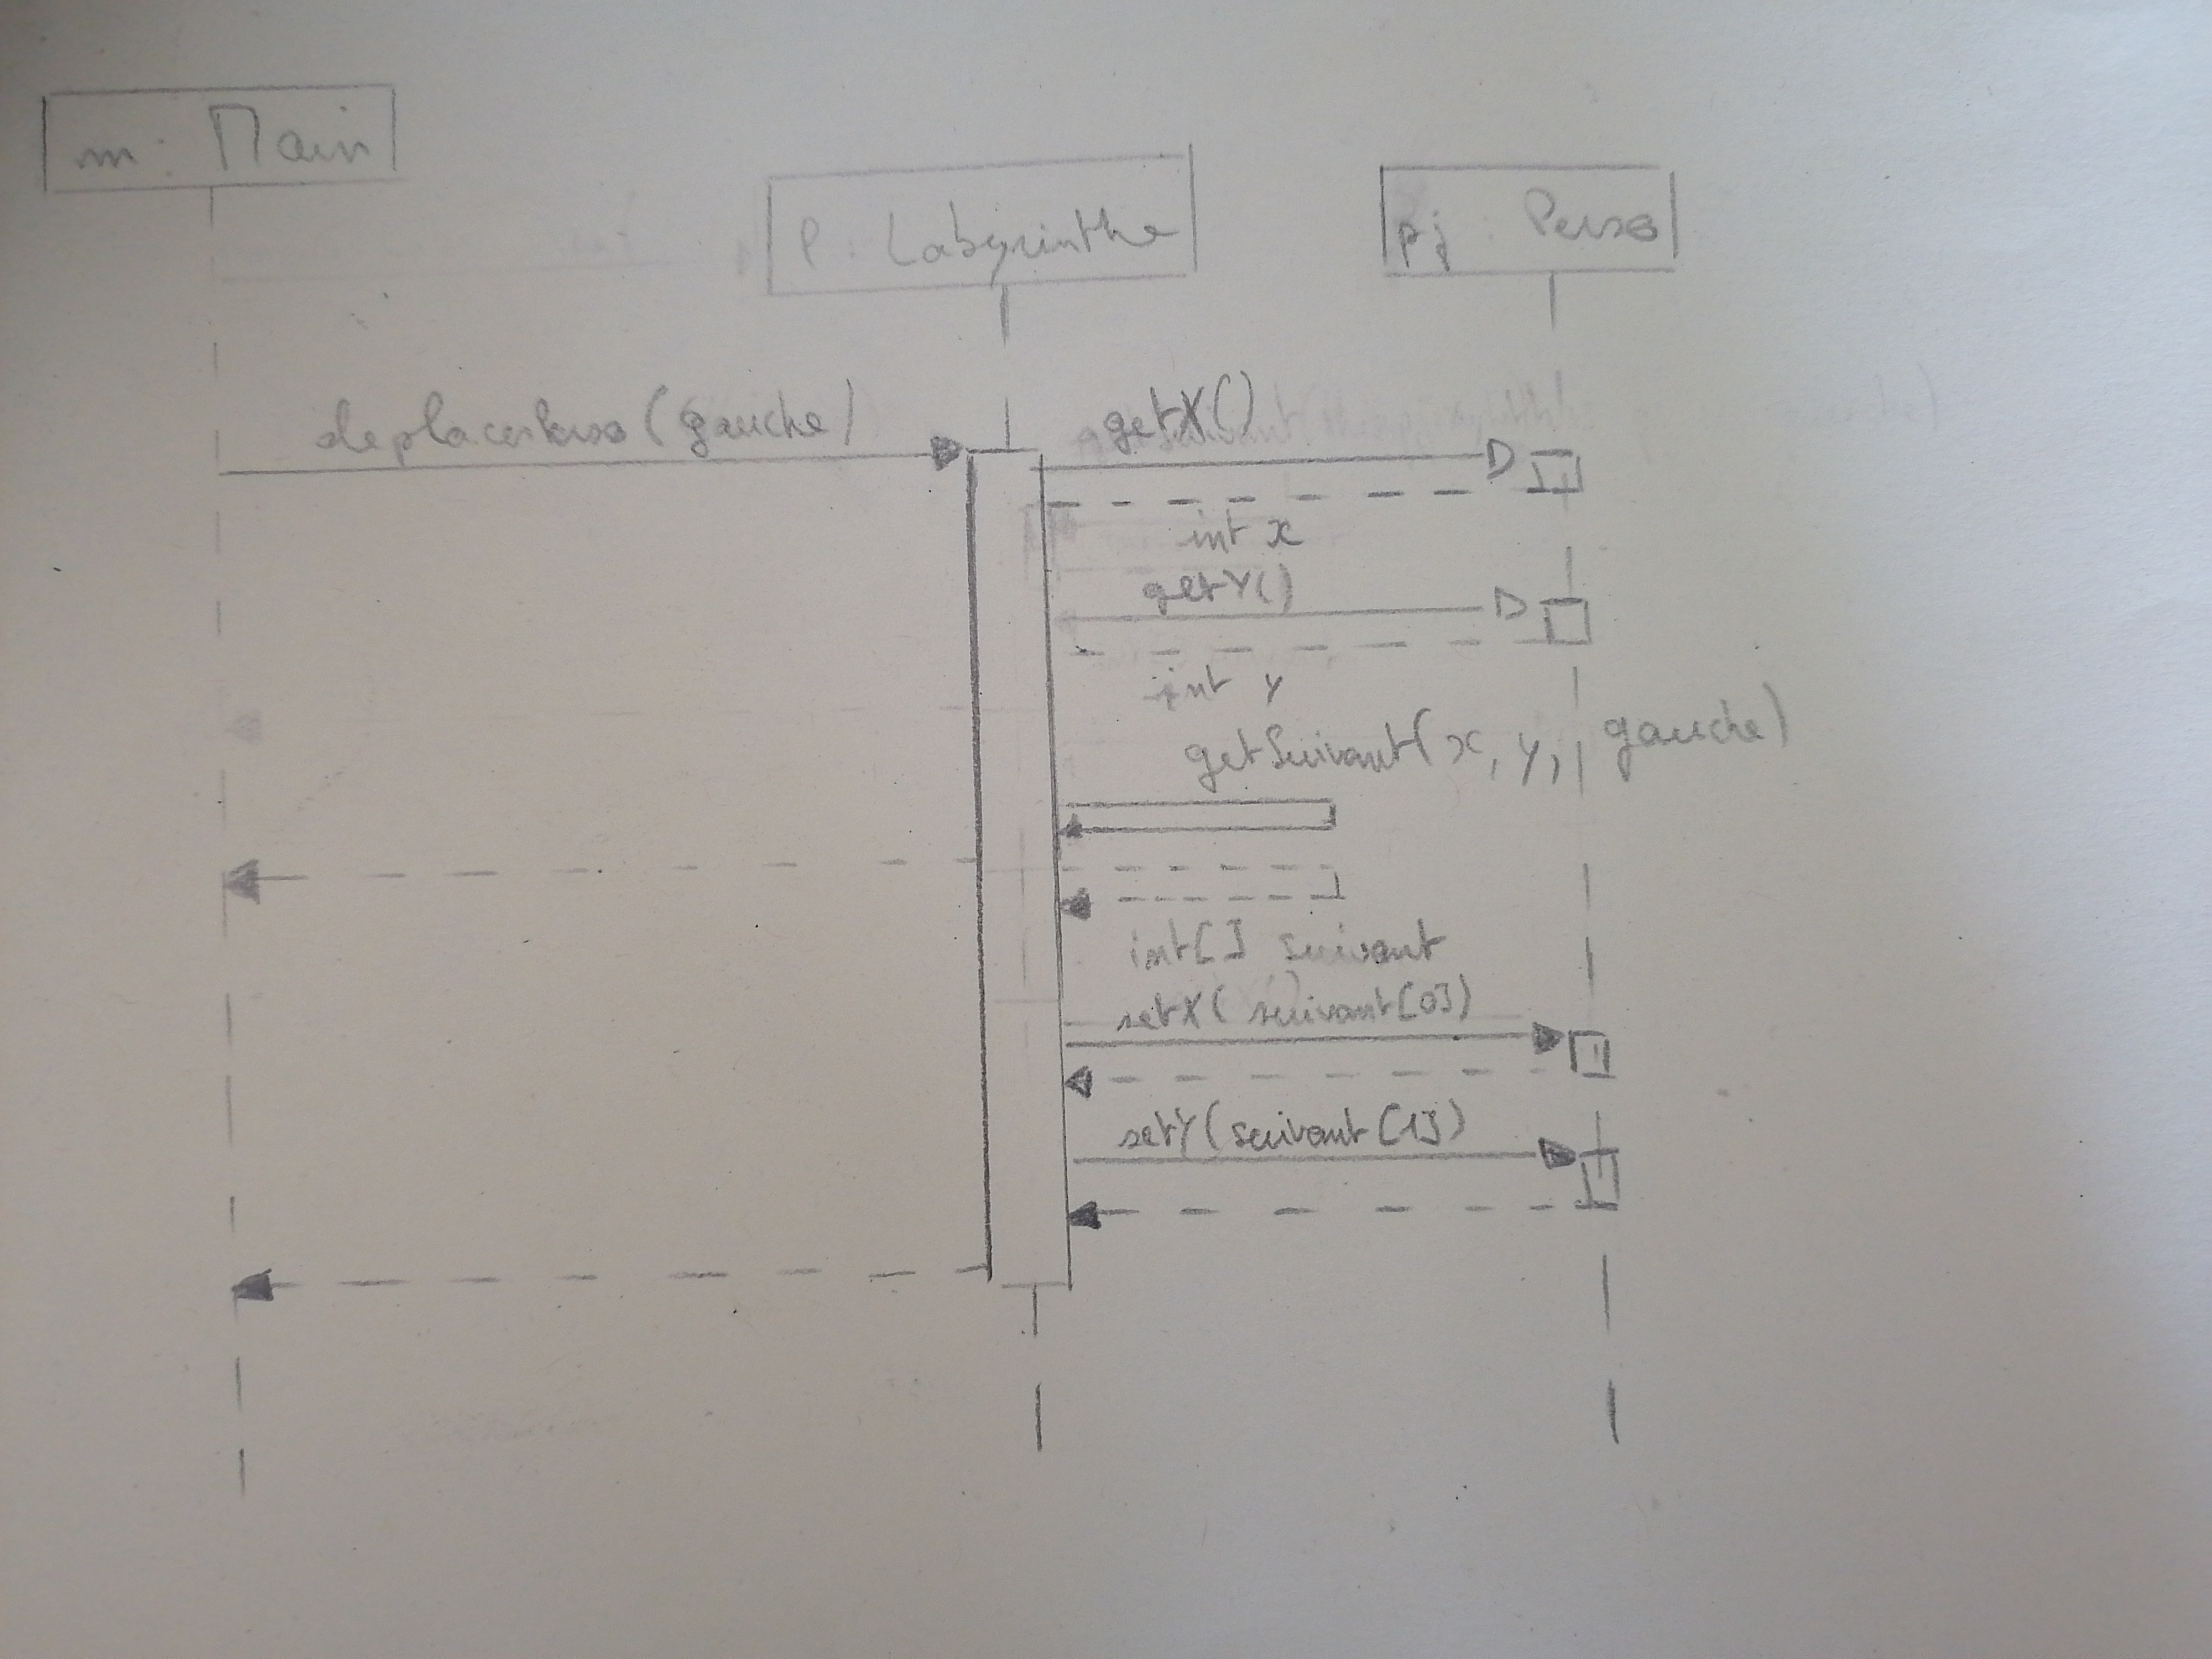 m : Main
P : Labyrinthe
pj : Perso
deplacerPerso (gauche)
getX()
int x
getY()
int y
getSuivant(x, y, gauche)
int[] suivant
setX( suivant[0])
setY(suivant[1])